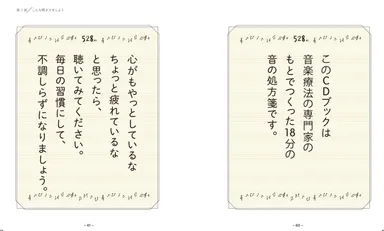 528Hz
このCDブックは
音楽療法の専門家の
もとでつくった18分の
音の処方箋です。
528Hz
心がもやっとしているな
ちょっと疲れているな
と思ったら、
聴いてみてください。
毎日の習慣にして、
不調しらずになりましょう。